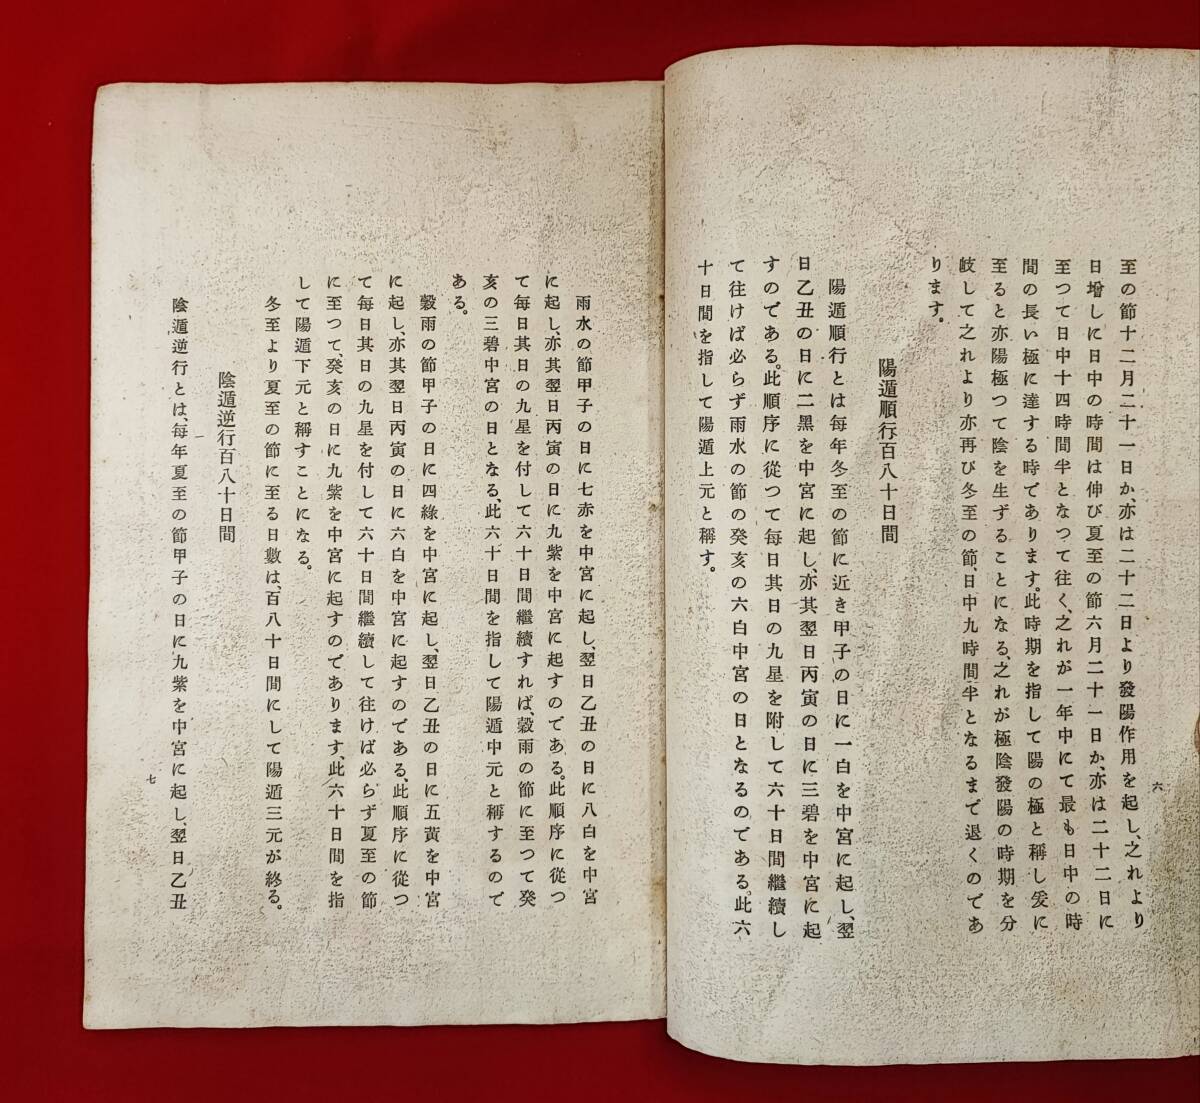 至の節十二月二十一日か、亦は二十二日より發陽作用を起し、之れより
日增しに日中の時間は伸び夏至の節六月二十一日か、亦は二十二日に
至つて日中十四時間半となつて往く、之れが一年中にて最も日中の時
間の長い極に達する時であります。此時期を指して陽の極と稱し爰に
至ると亦陽極つて陰を生ずることになる、之れが極陰發陽の時期を分
岐して之れより亦再び冬至の節、日中九時間半となるまで退くのであ
ります。
陽遁順行百八十日間
陽遁順行とは每年冬至の節に近き甲子の日に一白を中宮に起し、翌
日乙丑の日に二黑を中宮に起し、亦其翌日丙寅の日に三碧を中宮に起
すのである。此順序に從つて每日其日の九星を附して六十日間繼續し
て往けば必らず雨水の節の癸亥の六白中宮の日となるのである。此六
十日間を指して陽遁上元と稱す。
六
雨水の節甲子の日に七赤を中宮に起し、翌日乙丑の日に八白を中宮
に起し、亦其翌日丙寅の日に九紫を中宮に起すのである。此順序に從つ
て每日其日の九星を付して六十日間繼續すれば、穀雨の節に至つて癸
亥の三碧中宮の日となる、此六十日間を指して陽遁中元と稱するので
ある。
穀雨の節甲子の日に四綠を中宮に起し、翌日乙丑の日に五黃を中宮
に起し、亦其翌日丙寅の日に六白を中宮に起すのである、此順序に從つ
て每日其日の九星を付して六十日間繼續して往けば必らず夏至の節
に至つて、癸亥の日に九紫を中宮に起すのであります、此六十日間を指
して陽遁下元と稱すことになる。
冬至より夏至の節に至る日數は、百八十日間にして陽遁三元が終る。
陰遁逆行百八十日間
陰遁逆行とは、每年夏至の節甲子の日に九紫を中宮に起し、翌日乙丑
七